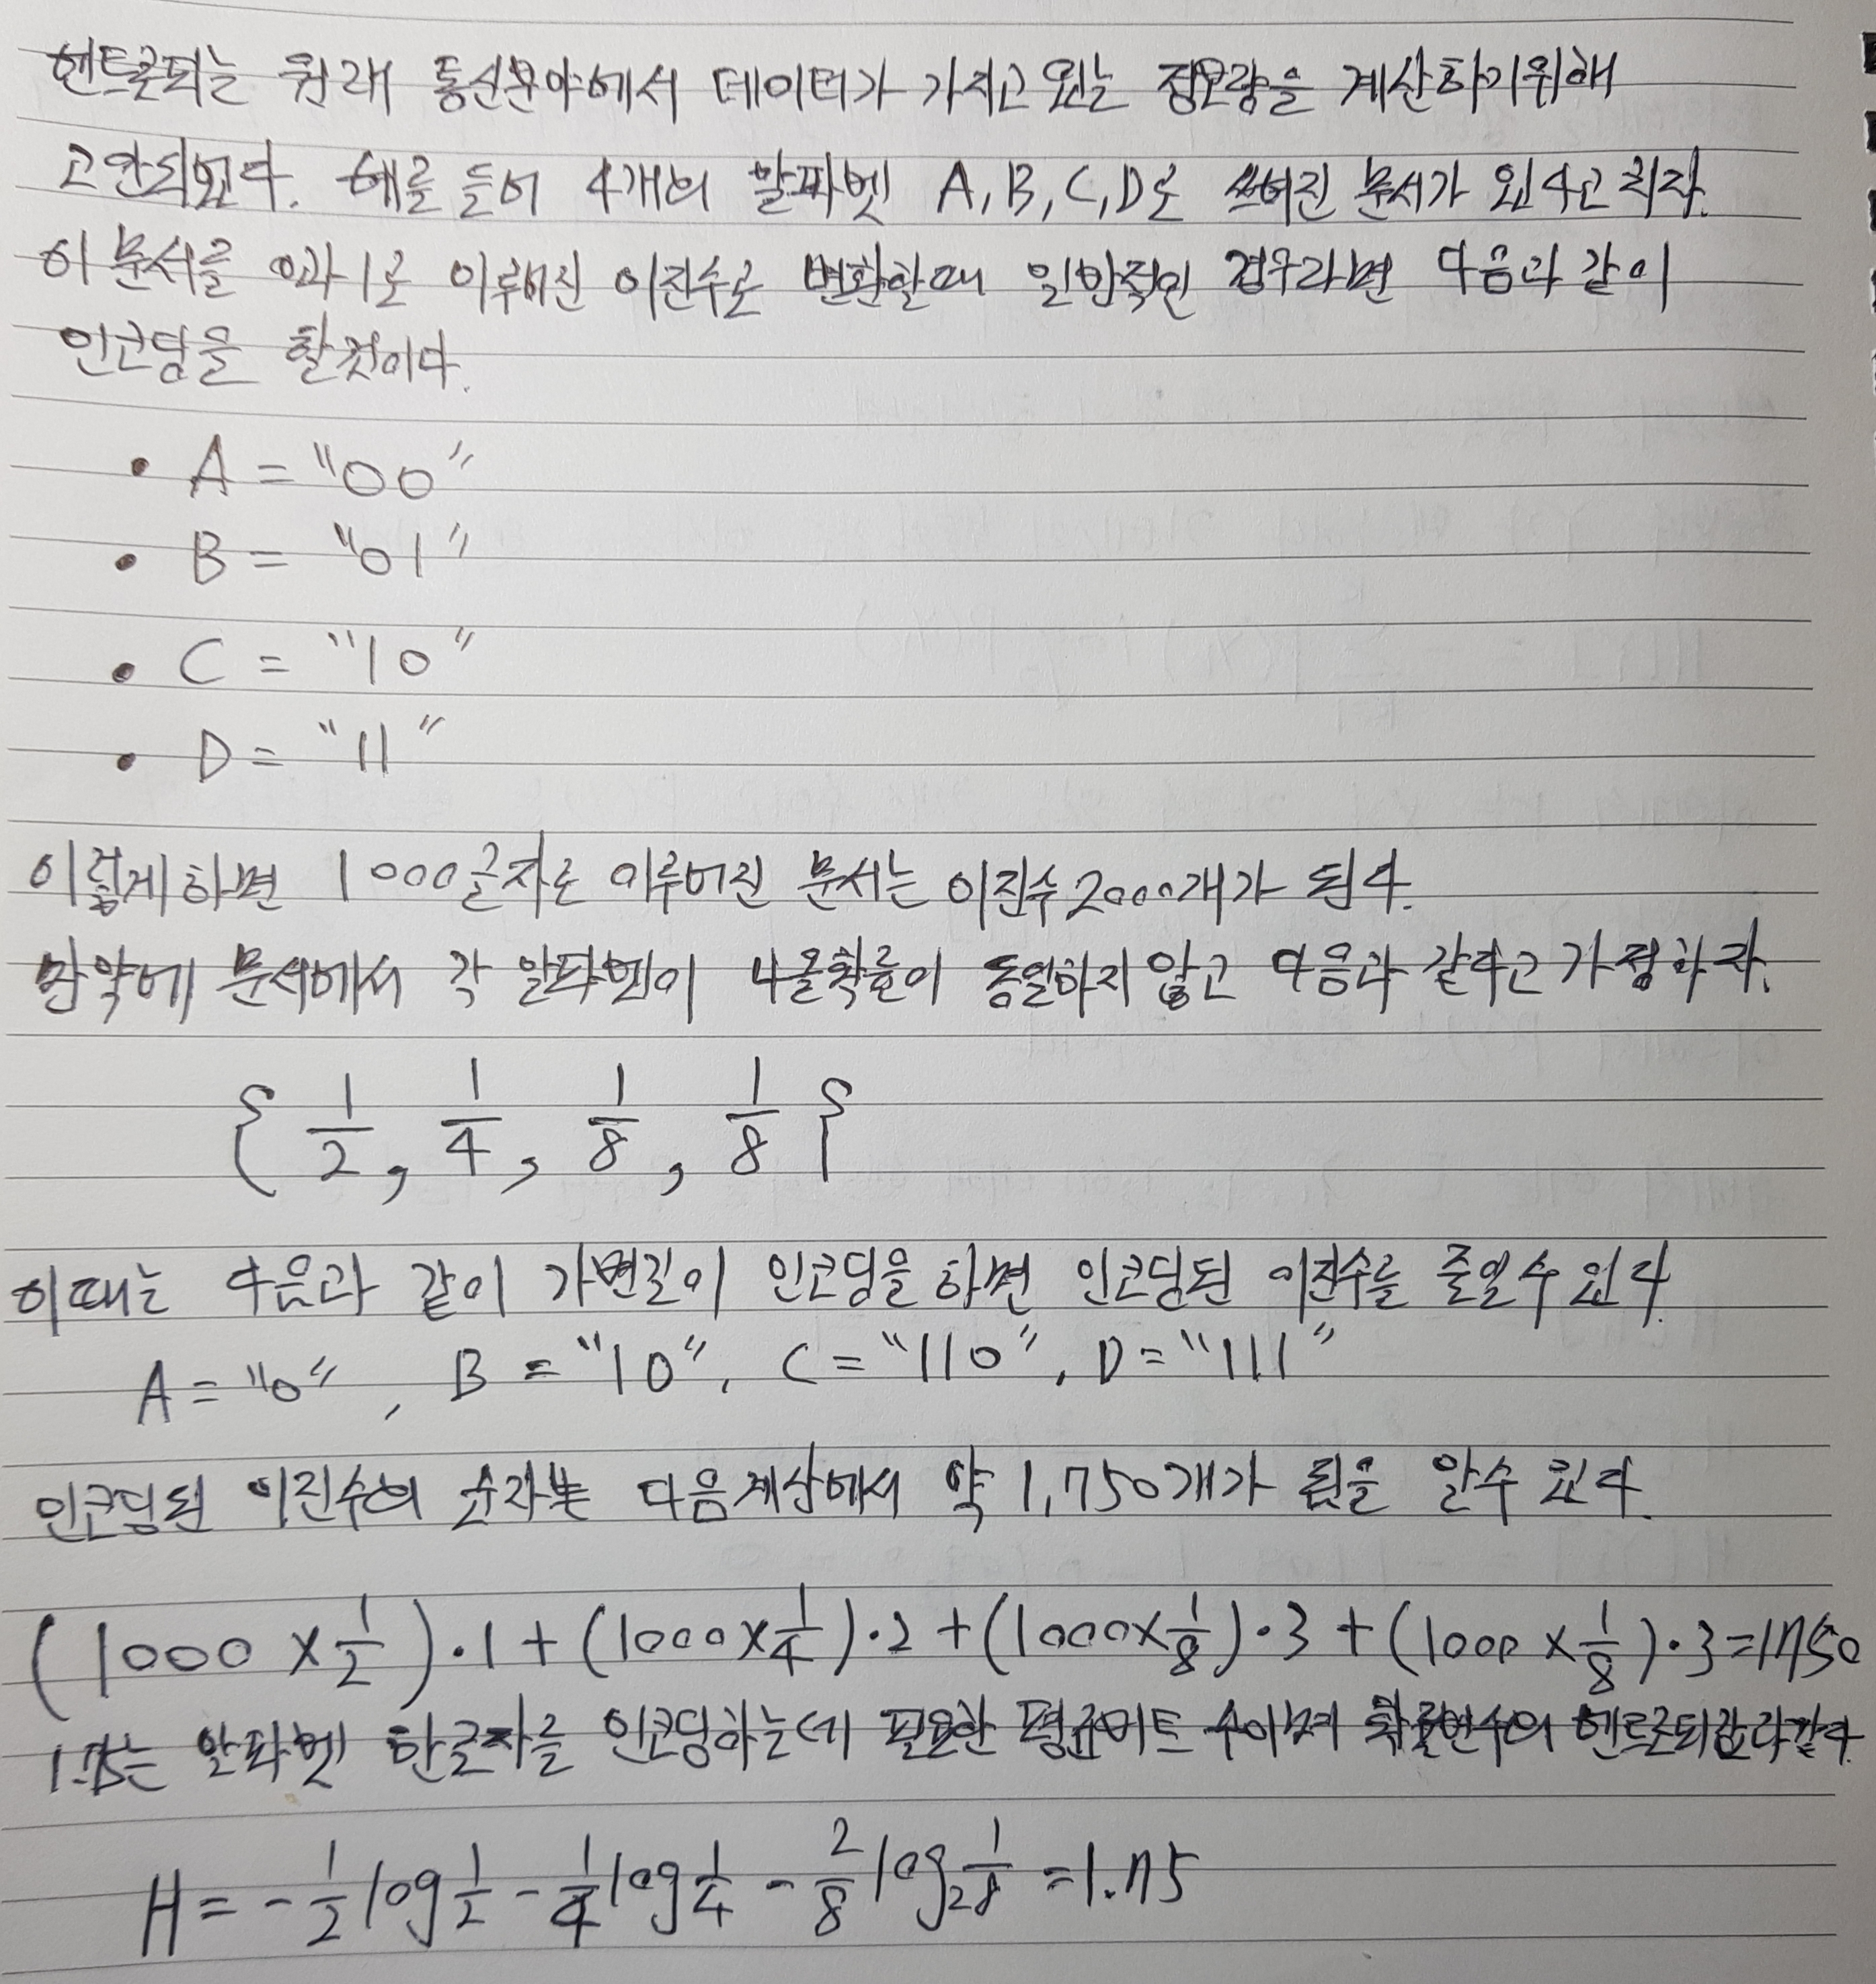 엔트로피는 원래 통신분야에서 데이터가 가지고 있는 정보량을 계산하기위해
고안되었다. 예를 들어 4개의 알파벳 A, B, C, D로 쓰여진 문서가 있다고 치자.
이 문서를 0과 1로 이루어진 이진수로 변환할때 일반적인 경우라면 다음과 같이
인코딩을 할것이다.
• A = "00"
• B = "01"
• C = "10"
• D = "11"
이렇게하면 1000글자로 이루어진 문서는 이진수 2000개가 된다.
만약에 문서에서 각 알파벳이 나올확률이 동일하지 않고 다음과 같다고 가정하자.
{ 1/2, 1/4, 1/8, 1/8 }
이때는 다음과 같이 가변길이 인코딩을 하면 인코딩된 이진수를 줄일수 있다
A = "0", B = "10", C = "110", D = "111"
인코딩된 이진수의 숫자는 다음계산에서 약 1,750개가 됨을 알수 있다.
(1000 × 1/2)·1 + (1000 × 1/4)·2 + (1000 × 1/8)·3 + (1000 × 1/8)·3 = 1750
1.75는 알파벳 한글자를 인코딩하는데 필요한 평균비트 수이며 확률변수의 엔트로피값과같다.
H = - 1/2 log 1/2 - 1/4 log 1/4 - 2/8 log₂ 1/8 = 1.75